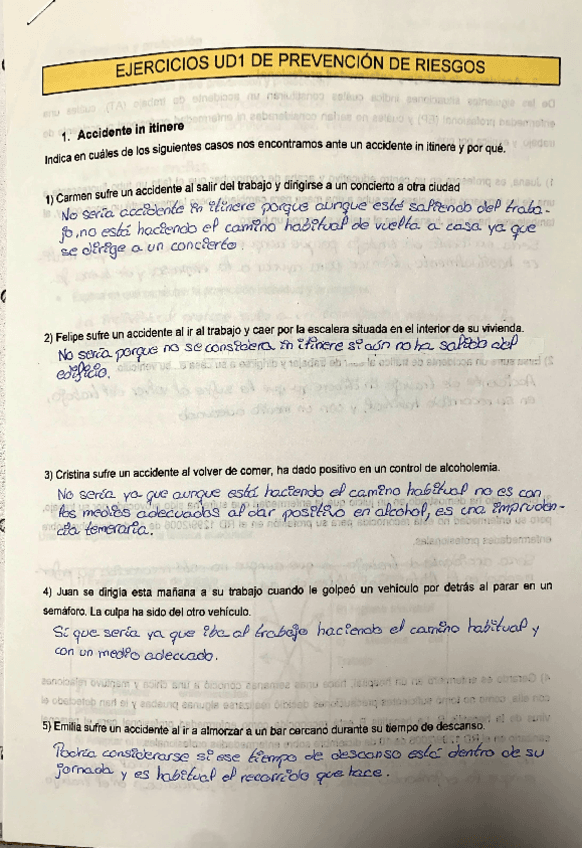 EJERCICIOS UD1 DE PREVENCIÓN DE RIESGOS
1. Accidente in itinere
Indica en cuáles de los siguientes casos nos encontramos ante un accidente in itinere y por qué.
1) Carmen sufre un accidente al salir del trabajo y dirigirse a un concierto a otra ciudad
No sería accidente in itinere porque aunque está saliendo del traba-
jo, no está haciendo el camino habitual de vuelta a casa ya que
se dirige a un concierto.
2) Felipe sufre un accidente al ir al trabajo y caer por la escalera situada en el interior de su vivienda.
No sería porque no se considera in itinere si aún no ha salido del
edificio.
3) Cristina sufre un accidente al volver de comer, ha dado positivo en un control de alcoholemia.
No sería ya que aunque está haciendo el camino habitual no es con
los medios adecuados al dar positivo en alcohol, es una impruden-
cia temeraria.
4) Juan se dirigía esta mañana a su trabajo cuando le golpeó un vehículo por detrás al parar en un
semáforo. La culpa ha sido del otro vehículo.
Sí que sería ya que iba al trabajo haciendo el camino habitual y
con un medio adecuado.
5) Emilia sufre un accidente al ir a almorzar a un bar cercano durante su tiempo de descanso.
Podría considerarse si ese tiempo de descanso está dentro de su
jornada y es habitual el recorrido que hace.